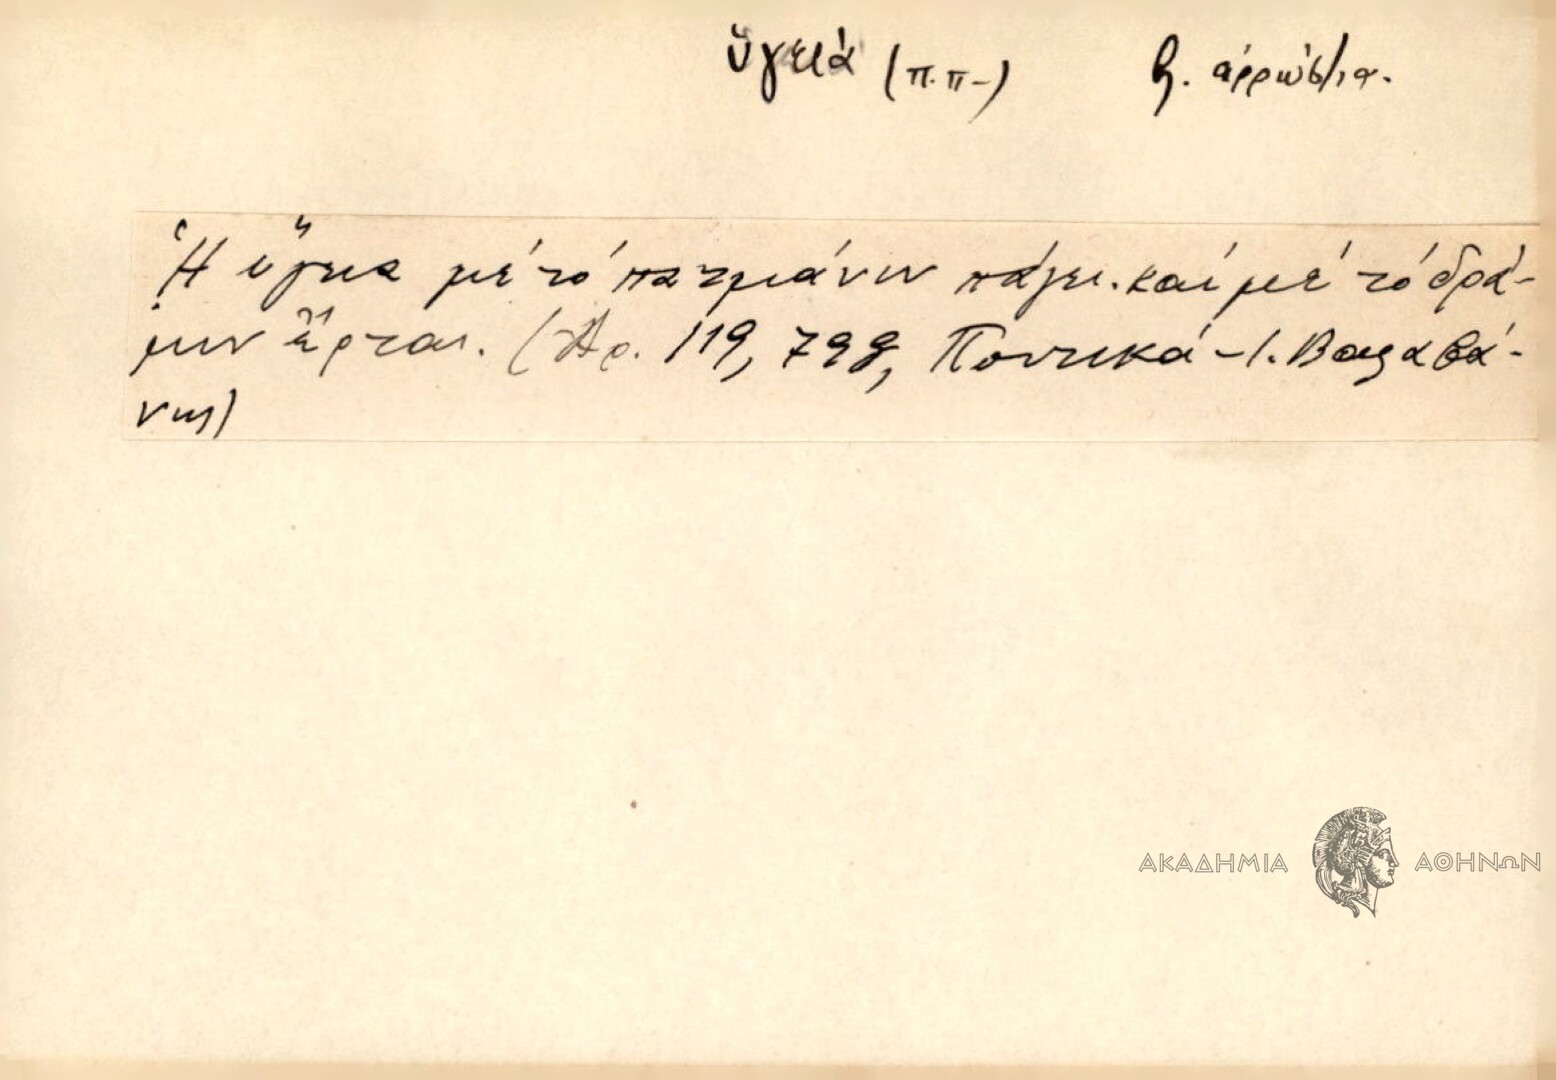 ὑγειά (π.π-) β. ἀρρώστια.
Ἡ ὕγεια μέ τό πατμάνιν πάγει. καί μέ τό δρά-
μιν ἔρται. (Ἀρ. 119, 798, Ποντικά - Ι. Βαλαβά-
νης)
ΑΚΑΔΗΜΙΑ ΑΘΗΝΩΝ